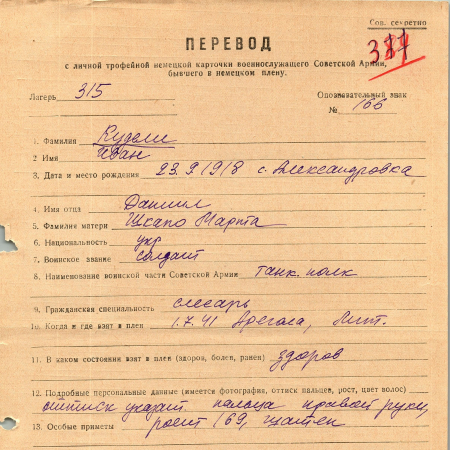 Сов. секретно
ПЕРЕВОД
387
с личной трофейной немецкой карточки военнослужащего Советской Армии,
бывшего в немецком плену.
Лагерь 315
Опознавательный знак
№ 166
1. Фамилия
2 Имя Иван
3. Дата и место рождения 23.9.1918 с. Александровка
4. Имя отца Даниил
5. Фамилия матери Шкапо Марта
6. Национальность укр
7. Воинское звание солдат
8. Наименование воинской части Советской Армии танк. полк
9. Гражданская специальность слесарь
10. Когда и где взят в плен 1.7.41 Арегала, Лит.
11. В каком состоянии взят в плен (здоров, болен, ранен) здоров
12. Подробные персональные данные (имеется фотография, оттиск пальцев, рост, цвет волос)
оттиск указат пальца правой руки,
13. Особые приметы рост 169, шатен